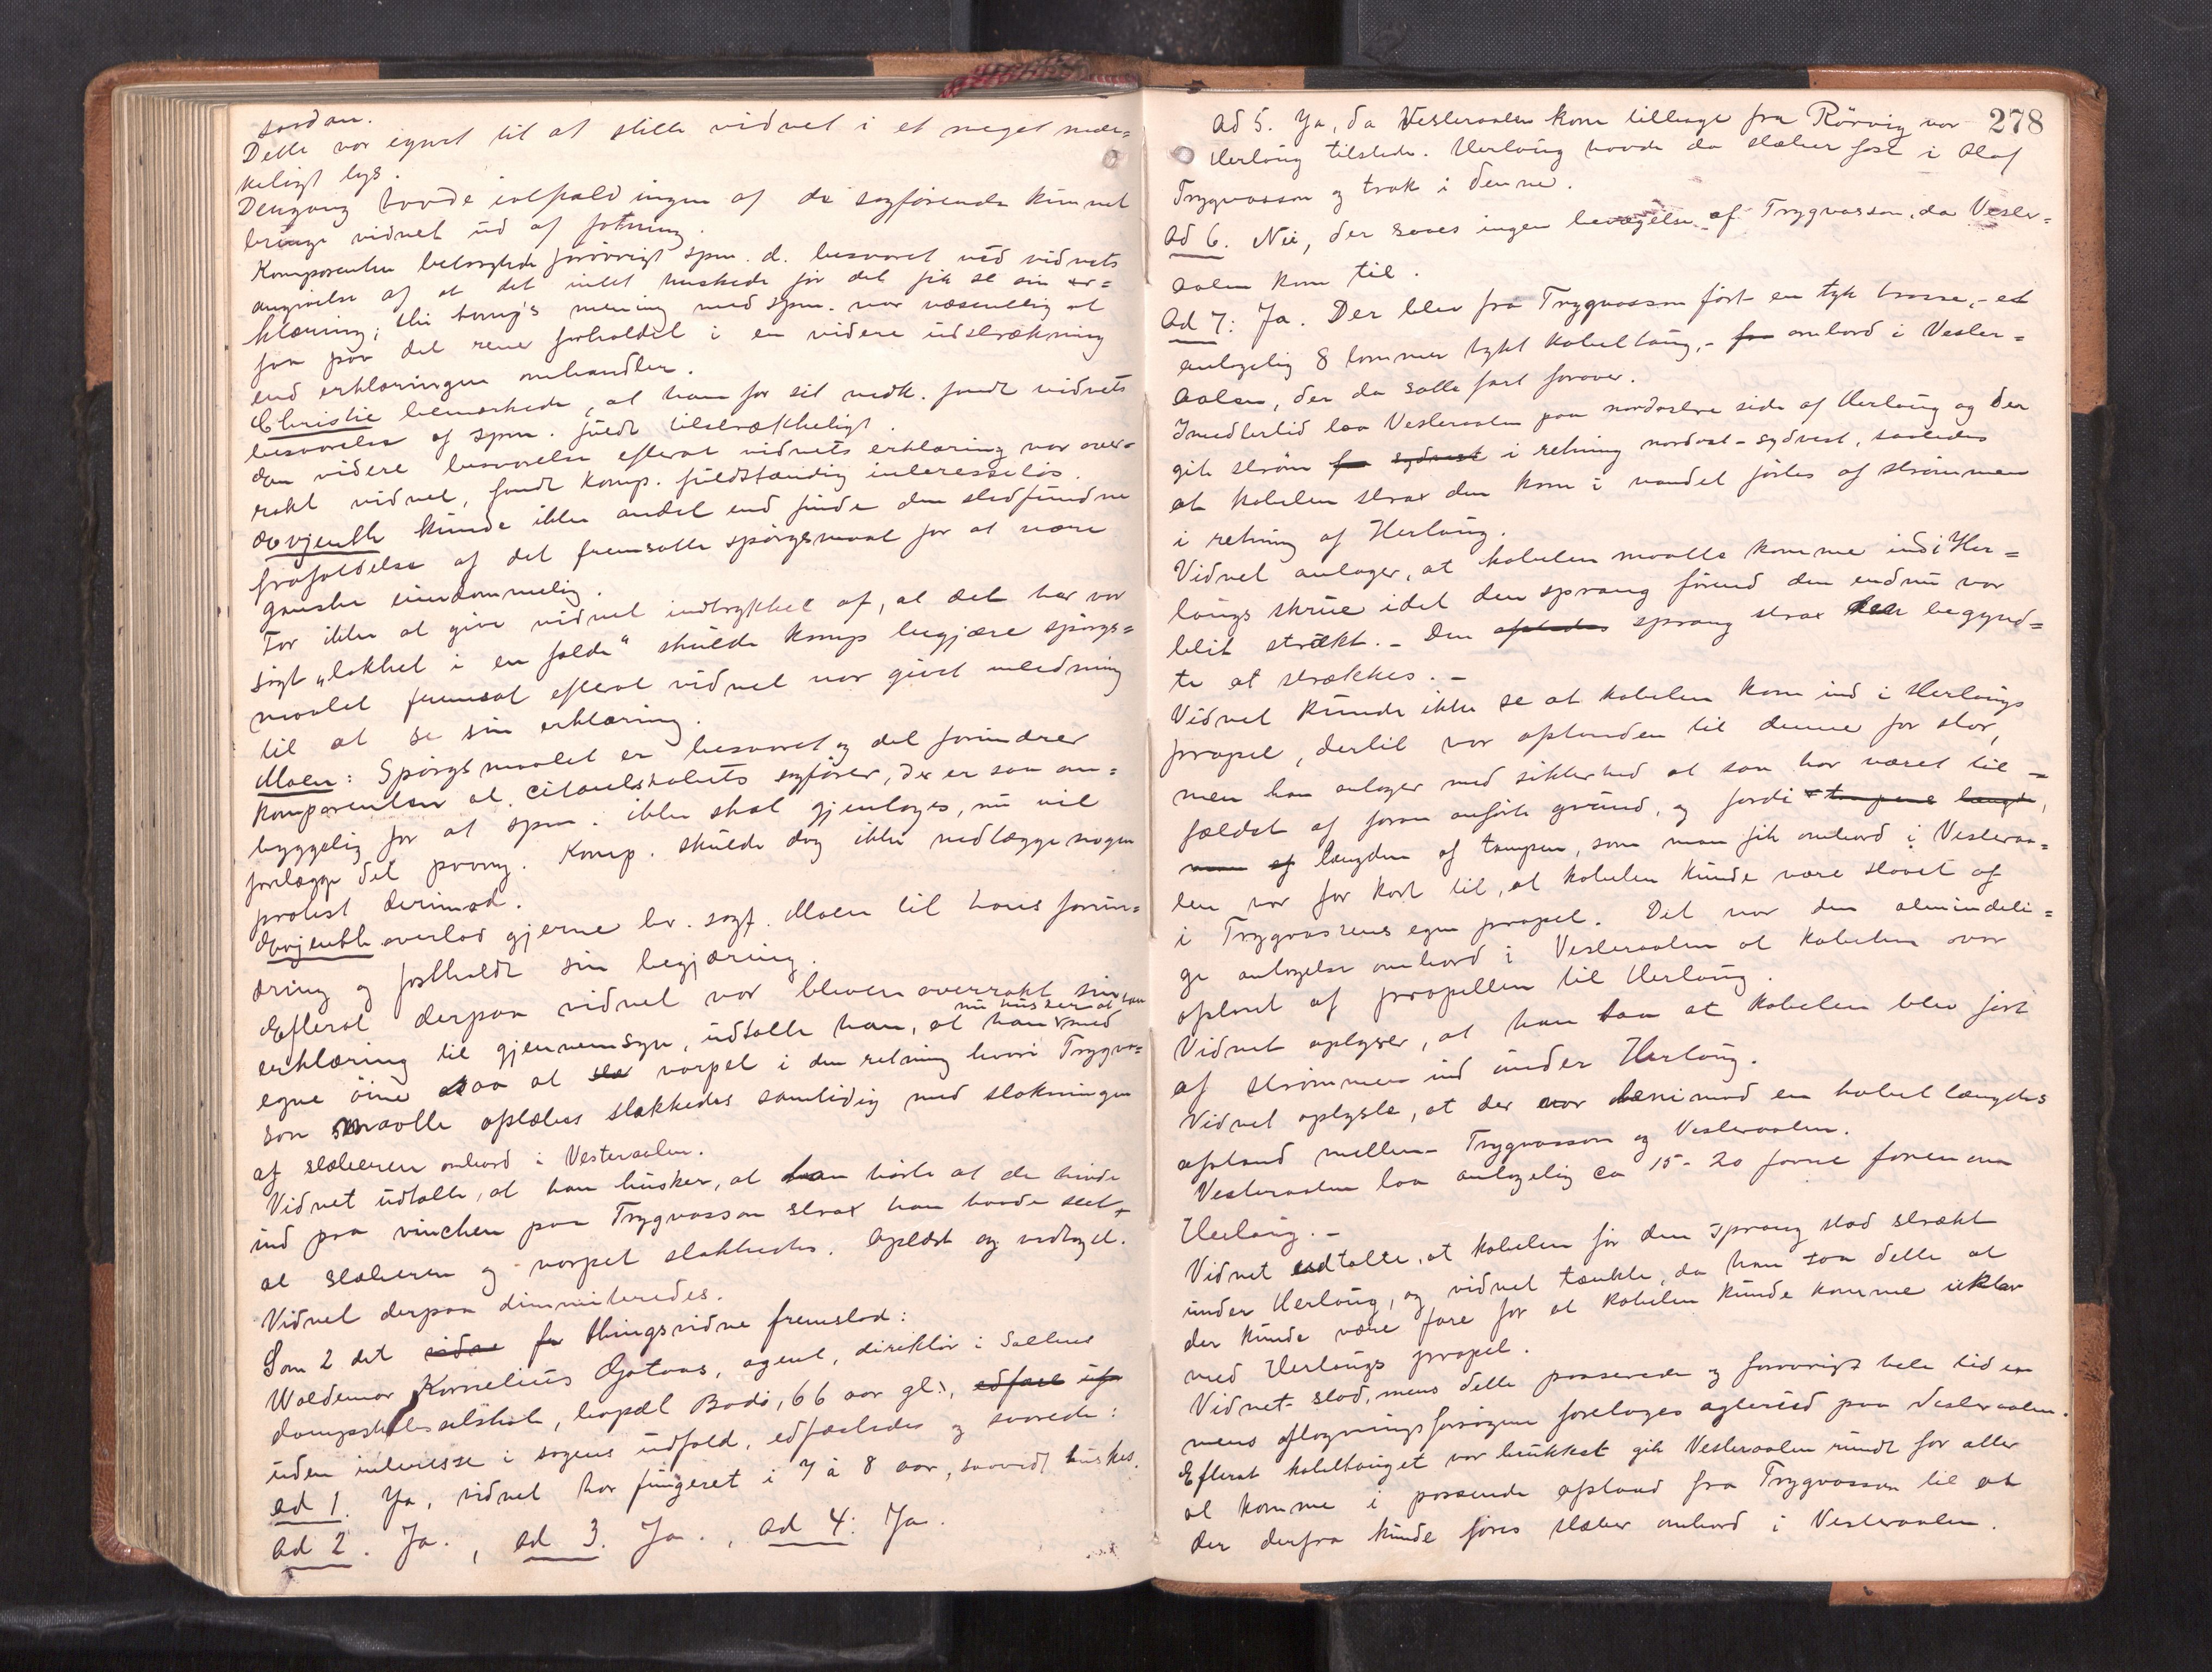 saadan.
Dette var egnet til at stille vidnet i et meget mær=
keligt lys.
Dengang havde ialfald ingen af de sagførende kunnet
bringe vidnet ud af fatning.
Komparenten betragtede forøvrigt spm. d. besvaret ved vidnets
angivelse af at det intet huskede før det fik se sin er=
klæring; thi komp's mening med spm. var væsentlig at
faa paa det rene forholdet i en videre udstrækning
end erklæringen omhandler.
Christie bemærkede, at han for sit vedk. fandt vidnets
besvarelse af spm. fuldt tilstrækkeligt.
Den videre besvarelse efterat vidnets erklæring var over=
rakt vidnet, fandt komp. fuldstændig interesseløs.
Evjenth kunde ikke andet end finde den stedfundne
frafaldelse af det fremsatte spørgsmaal for at være
ganske eiendommelig.
For ikke at give vidnet indtrykket af, at det har var
søgt "lokket i en fælde" skulde komp begjære spørgs=
maalet fremsat efterat vidnet var givet anledning
til at se sin erklæring.
Moen: Spørgsmaalet er besvaret og det forundrer
komparenten at citantskabets sagfører, der er saa om=
hyggelig for at spm. ikke skal gjentages, nu vil
forelægge det paany. Komp. skulde dog ikke nedlægge nogen
protest derimod.
Evjenth overlod gjerne hr. sagf. Moen til hans forun=
dring og fastholdt sin begjæring.
Efterat derpaa vidnet var bleven overrakt sin
erklæring til gjennemsyn, udtalte han, at han nu husker at han med
egne øine saa at slæ varpet i den retning hvori Trygva=
son maatte opslæbes slakkedes samtidig med slakningen
af slæberen ombord i Vesteraalen.
Vidnet udtalte, at han husker, at han hørte at de hivde
ind paa vinchen paa Trygvason strax han havde seet
at slæberen og varpet slakkedes. Oplæst og vedtaget.
Vidnet derpaa dimmiteredes.
Som 2 det vidne fr thingsvidne fremstod:
Waldemar Kornelius Gjotaas, agent, direktør i Saltens
dampskibsselskab, bopæl Bodø, 66 aar gl., edfæst uf
uden interesse i sagens udfald, edfæstedes og svarede:
ad 1. Ja, vidnet har fungeret i 7 à 8 aar, saavidt huskes.
ad 2. Ja., ad 3. Ja., ad 4: Ja.
278
ad 5. Ja, da Vesteraalen kom tilbage fra Rørvig var
Herlaug tilstede. Herlaug havde da slæber fast i Olaf
Trygvason og trak i denne.
ad 6. Nei, der saaes ingen bevægelse af Trygvasson, da Vester=
aalen kom til.
ad 7: Ja. Der blev fra Trygvasson ført en tyk trosse, - et
antagelig 8 tommer tykt kabeltaug, - fra ombord i Vester=
aalen, der da satte fart forover.
Imidlertid laa Vesteraalen paa nordøstre side af Herlaug og der
gik strøm fra sydvest i retning nordost - sydvest, saaledes
at kabelen strax den kom i vandet førtes af strømmen
i retning af Herlaug.
Vidnet antager, at kabelen maatte komme ind i Her=
laugs skrue idet den sprang førend den endnu var
blit strækt. - Den opstodes sprang strax den begynd=
te at strækkes. -
Vidnet kunde ikke se at kabelen kom ind i Herlaugs
propel, dertil var afstanden til denne for stor,
men han antager med sikkerhed at saa har været til=
fældet af foran anførte grund, og fordi tampens længde,
man af længden af tampen, som man fik ombord i Vesteraa=
len var for kort til, at kabelen kunde være slaaet af
i Trygvassons egen propel. Det var den almindeli=
ge antagelse ombord i Vesteraalen at kabelen var
opkaret af propellen til Herlaug.
Vidnet oplyser, at han saa at kabelen blev ført
af strømmen ind under Herlaug.
Vidnet oplyste, at der var henimod en kabellængdes
afstand mellem Trygvasson og Vesteraalen.
Vesteraalen laa antagelig ca 15 - 20 favne foran om
Herlaug. -
Vidnet udtalte, at kabelen før den sprang stod strækt
under Herlaug, og vidnet tænkte, da han saa dette at
der kunde være fare for at kabelen kunde komme uklar
med Herlaugs propel.
Vidnet stod, mens dette passerede og forøvrigt hele tiden
mens aftagningsforsøgene foretoges agterud paa Vesteraalen.
Efterat kabeltauget var brukket gik Vesteraalen rundt for atter
at komme i passende afstand fra Trygvasson til at
der derfra kunde føres slæber ombord i Vesteraalen.